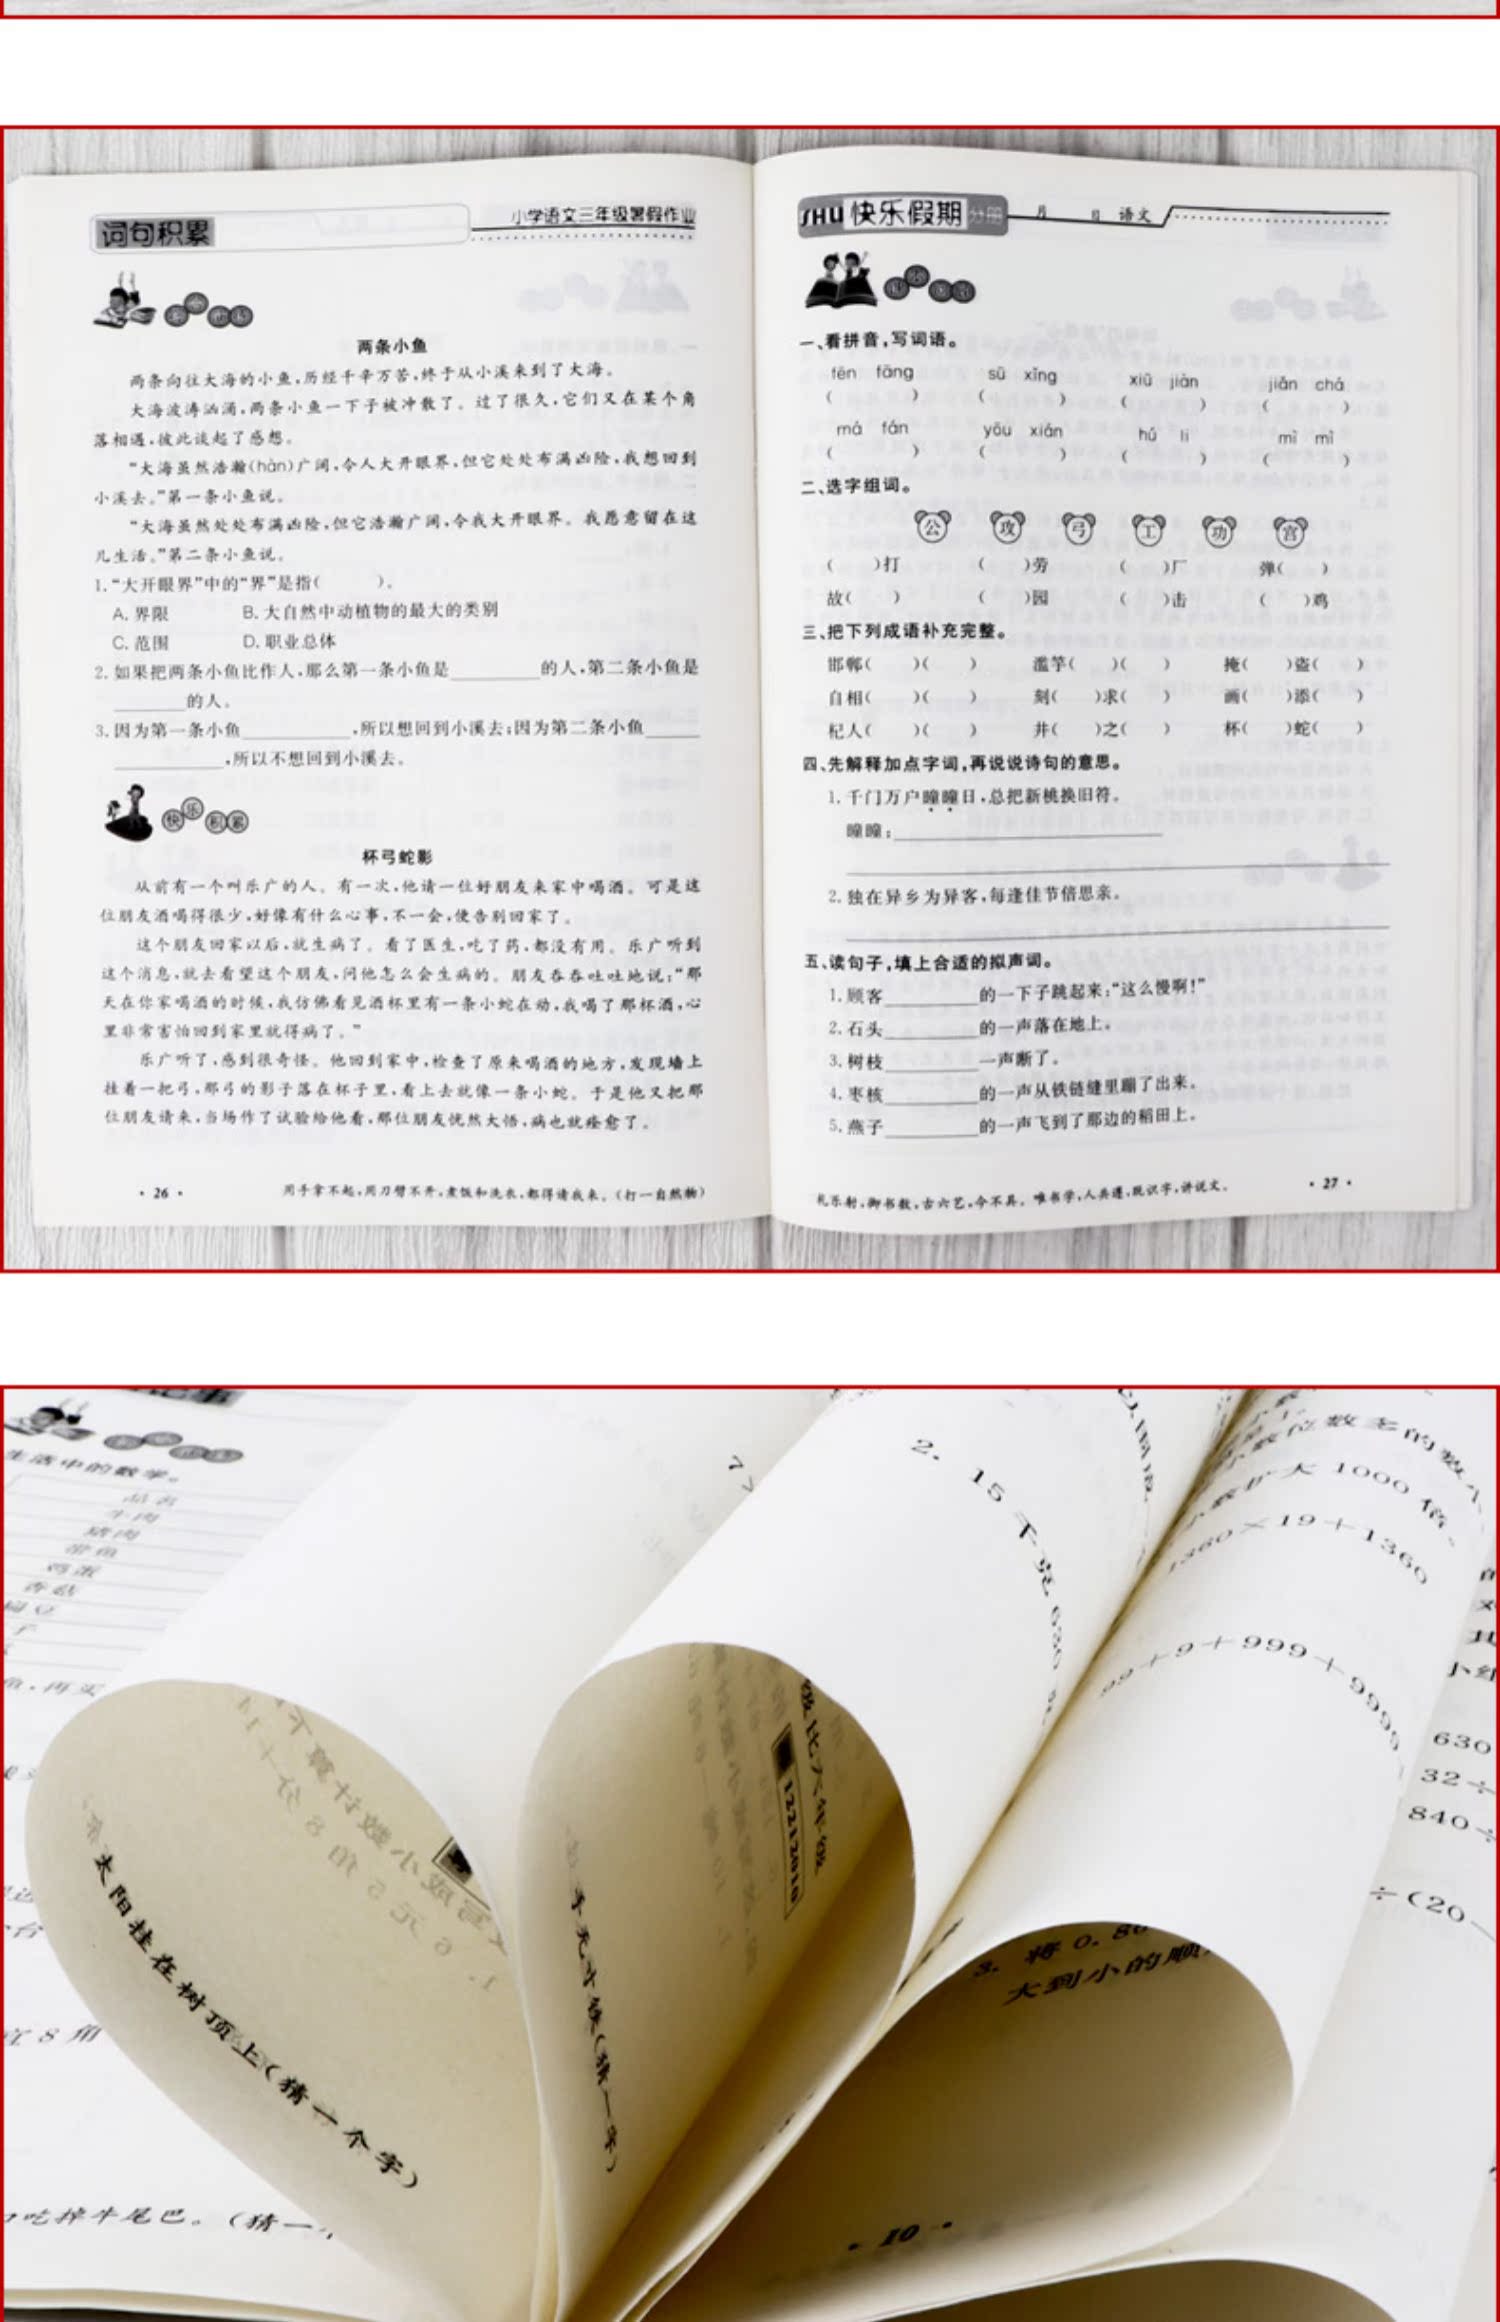 词句积累
小学语文三年级暑假作业
两条小鱼
两条向往大海的小鱼,历经千辛万苦,终于从小溪来到了大海。
大海波涛汹涌,两条小鱼一下子被冲散了。过了很久,它们又在某个角
落相遇,彼此谈起了感想。
“大海虽然浩瀚(hàn)广阔,令人大开眼界,但它处处布满凶险,我想回到
小溪去。”第一条小鱼说。
“大海虽然处处布满凶险,但它浩瀚广阔,令我大开眼界。我愿意留在这
儿生活。”第二条小鱼说。
1.“大开眼界”中的“界”是指( )。
A. 界限 B. 大自然中动植物的最大的类别
C. 范围 D. 职业总体
2. 如果把两条小鱼比作人,那么第一条小鱼是________的人,第二条小鱼是
________的人。
3. 因为第一条小鱼__________,所以想回到小溪去;因为第二条小鱼_____
__________,所以不想回到小溪去。
快乐积累
杯弓蛇影
从前有一个叫乐广的人。有一次,他请一位好朋友来家中喝酒。可是这
位朋友酒喝得很少,好像有什么心事,不一会,便告别回家了。
这个朋友回家以后,就生病了。看了医生,吃了药,都没有用。乐广听到
这个消息,就去看望这个朋友,问他怎么会生病的。朋友吞吞吐吐地说:“那
天在你家喝酒的时候,我仿佛看见酒杯里有一条小蛇在动,我喝了那杯酒,心
里非常害怕回到家里就得病了。”
乐广听了,感到很奇怪。他回到家中,检查了原来喝酒的地方,发现墙上
挂着一把弓,那弓的影子落在杯子里,看上去就像一条小蛇。于是他又把那
位朋友请来,当场作了试验给他看,那位朋友恍然大悟,病也就痊愈了。
· 26 ·
用手拿不起,用刀劈不开,煮饭和洗衣,都得请我来。(打一自然物)
SHU 快乐假期 分册 月 日 语文
一、看拼音,写词语。
fēn fāng sū xǐng xiū jiàn jiǎn chá
( ) ( ) ( ) ( )
má fán yōu xián hú li mì mì
( ) ( ) ( ) ( )
二、选字组词。
公 攻 弓 工 功 宫
( )打 ( )劳 ( )厂 弹( )
故( ) ( )园 ( )击 ( )鸡
三、把下列成语补充完整。
邯郸( )( ) 滥竽( )( ) 掩( )盗( )
自相( )( ) 刻( )求( ) 画( )添( )
杞人( )( ) 井( )之( ) 杯( )蛇( )
四、先解释加点字词,再说说诗句的意思。
1. 千门万户曈曈日,总把新桃换旧符。
曈曈:____________________
2. 独在异乡为异客,每逢佳节倍思亲。
五、读句子,填上合适的拟声词。
1. 顾客________的一下子跳起来:“这么慢啊!”
2. 石头________的一声落在地上。
3. 树枝________一声断了。
4. 枣核________的一声从铁链缝里蹦了出来。
5. 燕子________的一声飞到了那边的稻田上。
礼乐射,御书数,古六艺,今不具。唯书学,人共遵,既识字,讲说文。
· 27 ·
生活中的数学。
品名
牛肉
猪肉
带鱼
鸡蛋
香菇
扁豆
2. 15 千克 630
小数位数多的数
小数扩大 1000 倍。
1360×19+1360
99+9+999+9999
630
32÷
840÷
÷(20
太阳挂在树顶上(猜一个字)
手无寸铁(猜一字)
12212010
3. 将 0.86
大到小的顺
· 10 ·
宜 8 角
吃掉牛尾巴。(猜一